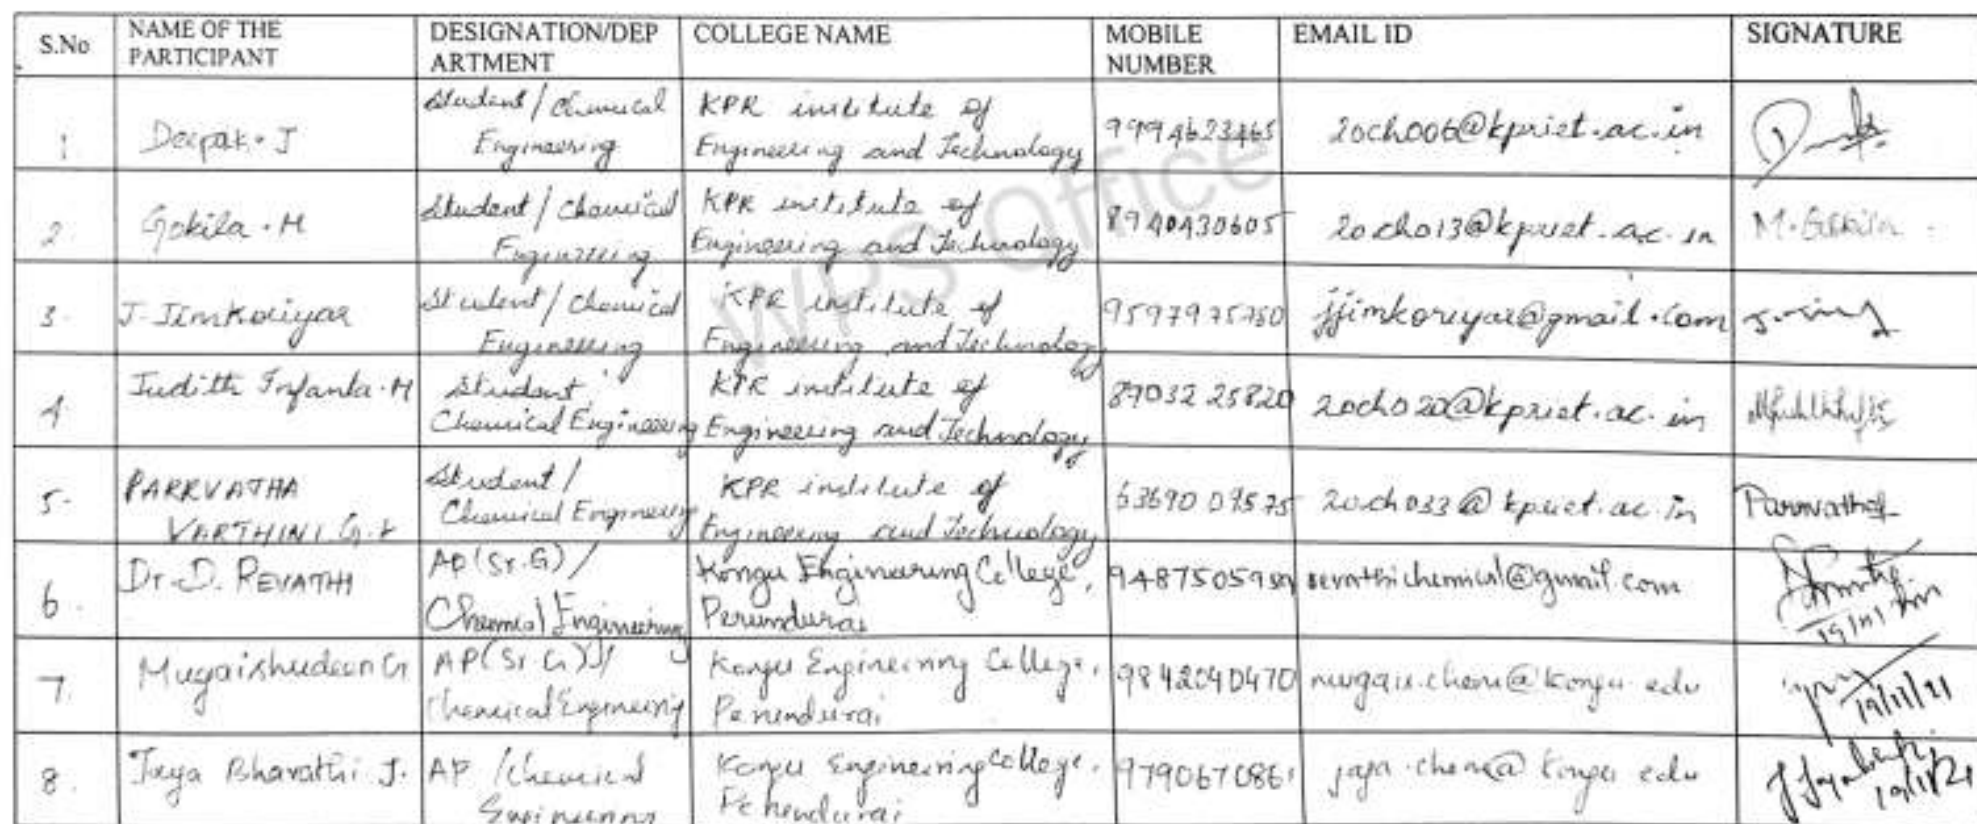 S.No NAME OF THE PARTICIPANT DESIGNATION/DEP ARTMENT COLLEGE NAME MOBILE NUMBER EMAIL ID SIGNATURE
1 Deepak. J Student / Chemical Engineering KPR institute of Engineering and Technology 9994623465 20ch006@kpriet.ac.in
2. Gokila . M Student / Chemical Engineering KPR institute of Engineering and Technology 8940430605 20ch013@kpriet.ac.in M. Gokila
3. J. Jimkoriyar Student / Chemical Engineering KPR institute of Engineering and Technology 9597975750 jjimkoriyar@gmail.com
4 Judith Infanta . M Student Chemical Engineering KPR institute of Engineering and Technology 87032 25820 20ch020@kpriet.ac.in
5. PARRVATHA VARTHINI G.K Student / Chemical Engineering KPR institute of Engineering and Technology 63690 09575 20ch033@kpriet.ac.in
6. Dr. D. REVATHI AP(Sr.G) / Chemical Engineering Kongu Engineering College, Perundurai revathichemical@gmail.com
7. Mugaishudeen G AP(Sr.G)/ Chemical Engineering Kongu Engineering College, Perundurai 9842040470 mugais.chem@kongu.edu 19/11/21
8. Jaya Bharathi J. AP / Chemical Engineering Kongu Engineering College, Perundurai 9790670861 jaya.chem@kongu.edu 19/11/21
WPS Office